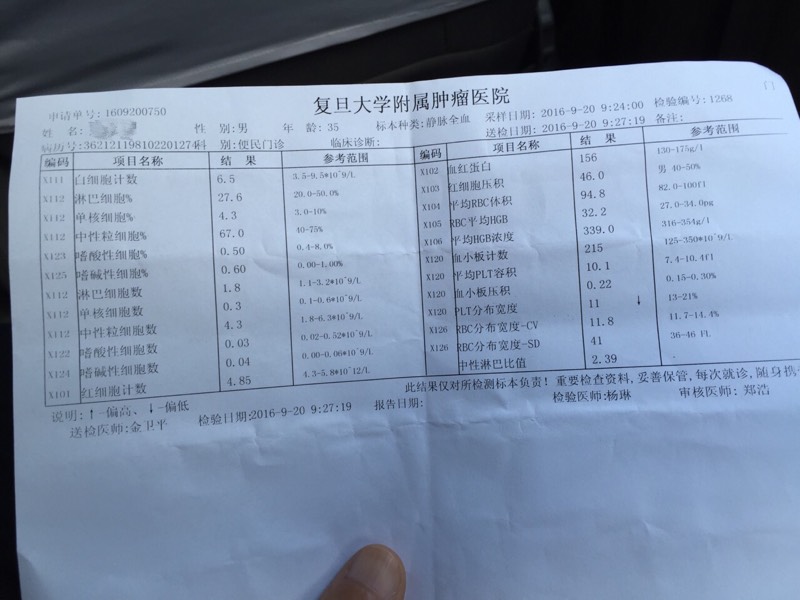 复旦大学附属肿瘤医院
申请单号: 1609200750
采样日期: 2016-9-20 9:24:00 检验编号: 1268
姓 名: 性 别:男 年 龄: 35 标本种类:静脉全血 送检日期: 2016-9-20 9:27:19 备注:
病历号:362121198102201274科 别:便民门诊 临床诊断:
编码 项目名称 结 果 参考范围
X111 白细胞计数 6.5 3.5-9.5*10^9/L
X112 淋巴细胞% 27.6 20.0-50.0%
X112 单核细胞% 4.3 3.0-10%
X112 中性粒细胞% 67.0 40-75%
X123 嗜酸性细胞% 0.50 0.4-8.0%
X125 嗜碱性细胞% 0.60 0.00-1.00%
X112 淋巴细胞数 1.8 1.1-3.2*10^9/L
X112 单核细胞数 0.3 0.1-0.6*10^9/L
X112 中性粒细胞数 4.3 1.8-6.3*10^9/L
X122 嗜酸性细胞数 0.03 0.02-0.52*10^9/L
X124 嗜碱性细胞数 0.04 0.00-0.06*10^9/L
X101 红细胞计数 4.85 4.3-5.8*10^12/L
编码 项目名称 结 果 参考范围
X102 血红蛋白 156 130-175g/l
X103 红细胞压积 46.0 男 40-50%
X104 平均RBC体积 94.8 82.0-100fl
X105 RBC平均HGB 32.2 27.0-34.0pg
X106 平均HGB浓度 339.0 316-354g/l
X120 血小板计数 215 125-350*10^9/L
X120 平均PLT容积 10.1 7.4-10.4fl
X120 血小板压积 0.22 0.15-0.30%
X120 PLT分布宽度 11 ↓ 13-21%
X126 RBC分布宽度-CV 11.8 11.7-14.4%
X126 RBC分布宽度-SD 41 36-46 fL
中性淋巴比值 2.39
此结果仅对所检测标本负责! 重要检查资料,妥善保管,每次就诊,随身携
说明:↑-偏高、↓-偏低
送检医师:金卫平 检验日期:2016-9-20 9:27:19 报告日期: 检验医师:杨琳 审核医师: 郑浩